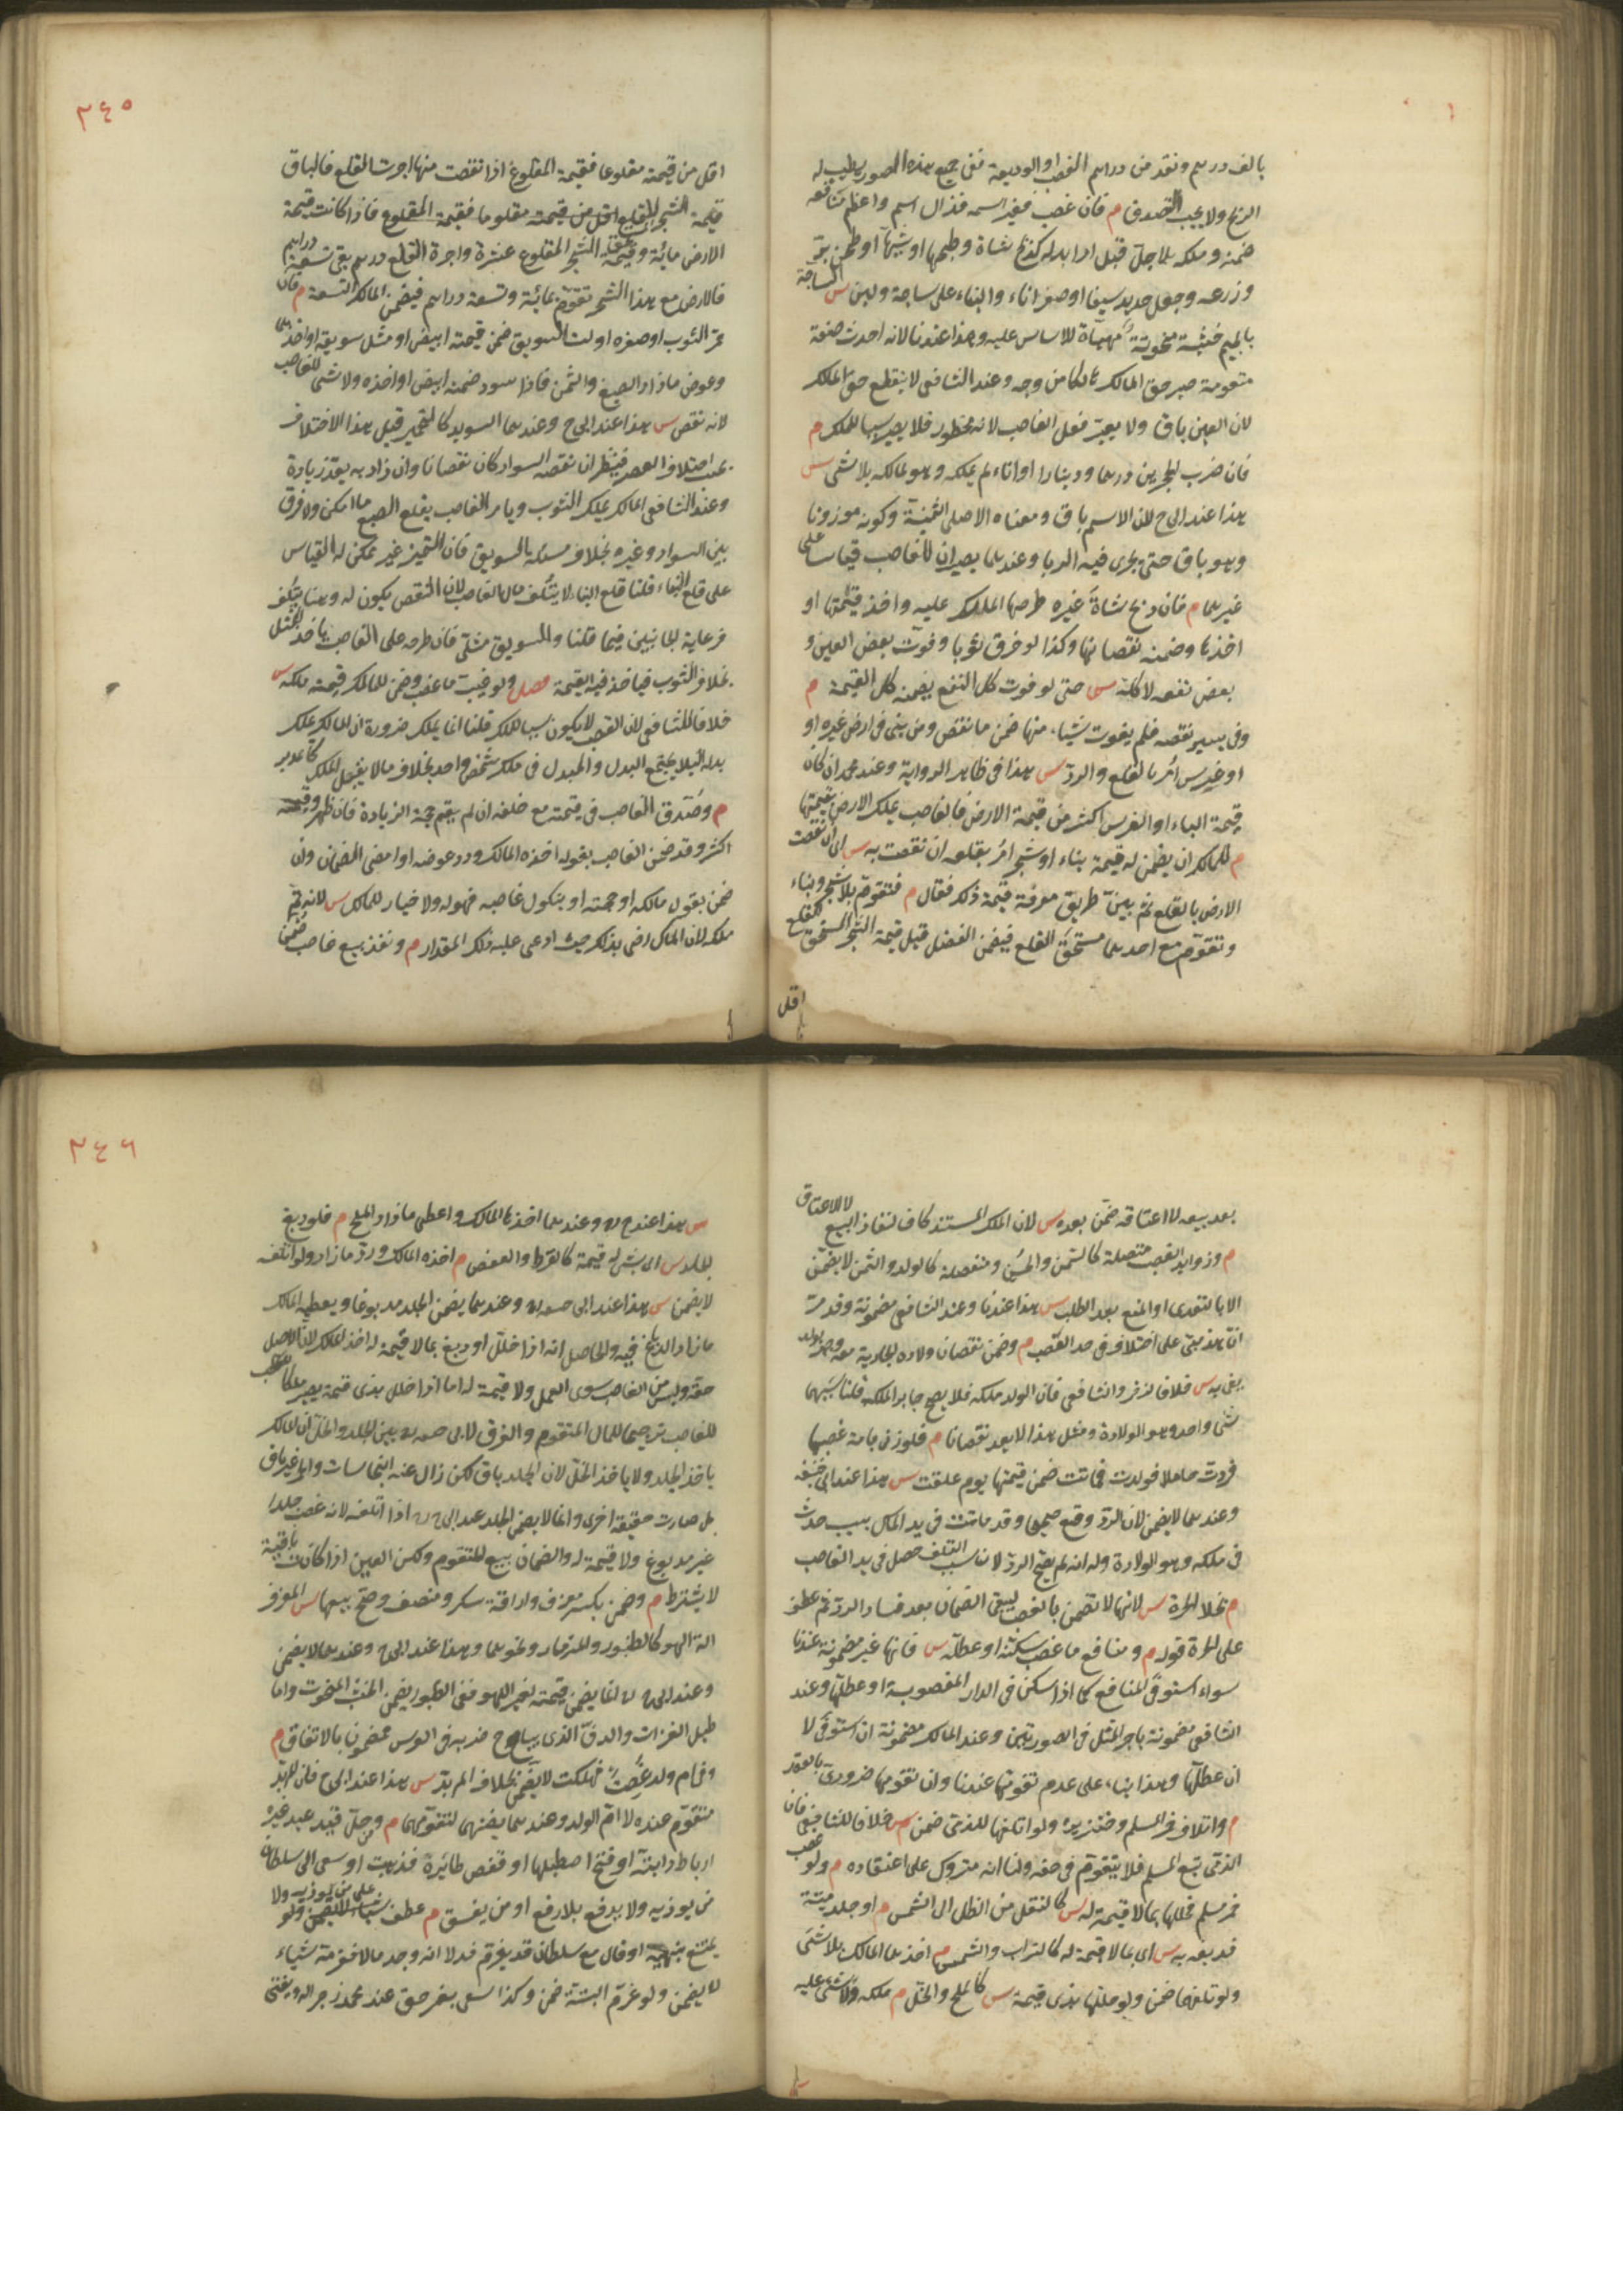 بالف درهم ونقد من دراهم الغصب او الوديعة ففى جميع هذه الصور يطيب له
الربح ولا يجب التصدق م فان غصب فغير اسمه فزال اسم واعظم منافعه
ضمنه وملكه بلا حل قبل ادا بدله كذبح شاة وطبخها او شيها او طحن بر
وزرعه وجعل حديد سيفا او صفر اناء والبناء على ساجة ولبن س الساجة
بالجيم خشبة منحوتة مهيأة للاساس عليه وهذا عندنا لانه احدث صنعة
متقومة صير حق المالك هالكا من وجه وعند الشافعى لا ينقطع حق المالك
لان العين باق ولا يعتبر فعل الغاصب لانه محظور فلا يصير سببا للملك م
فان ضرب الحجرين درهما ودينارا او اناء لم يملكه وهو لمالكه بلا شى س
هذا عند ابى ح لان الاسم باق ومعناه الاصلى الثمنية وكونه موزونا
وهو باق حتى يجرى فيه الربا وعندهما يصيران للغاصب قياسا على
غيرهما م فان ذبح شاة غيره طرحها المالك عليه واخذ قيمتها او
اخذها وضمنه نقصانها وكذا لو خرق ثوبا وفوت بعض العين و
بعض نفعه لا كله س حتى لو فوت كل النفع يضمنه كل القيمة م
وفى يسير نقصه فلم يفوت شيئا منها ضمن ما نقص ومن بنى فى ارض غيره او
او غرس امر بالقلع والرد س هذا فى ظاهر الرواية وعند محمد ان كان
قيمة البناء او الغرس اكثر من قيمة الارض فالغاصب يملك الارض بقيمتها
م للمالك ان يضمن له قيمة بناء او شجر امر بقلعه ان نقصت به س اى ان نقصت
الارض بالقلع ثم بين طريق معرفة قيمة ذلك فقال م فتقوم بلا شجر وبناء
وتقوم مع احدهما مستحق القلع فيضمن الفضل قيل قيمة الشجر المستحق للقلع
اقل
٣٤٥
اقل من قيمته مقلوعا فقيمة المقلوع اذا نقصت منها اجرت القلع فالباق
قيمة الشجر للقلع اقل من قيمته مقلوعا فقيمة المقلوع فاذا كانت قيمة
الارض مائة وقيمة الشجر المقلوع عشرة واجرة القلع درهم بقى تسعة دراهم
فالارض مع هذا الشجر تقوم بمائة وتسعة دراهم فيضمن المالك التسعة م فان
حمر الثوب او صفره او لت السويق ضمن قيمته ابيض او مثل سويقه او اخذهما
وعوض ما زاد الصبغ والسمن فاذا سود ضمنه ابيض او اخذه ولا شى للغاصب
لانه نقص س هذا عند ابى ح وعندهما السويد كالتحمير قيل هذا الاختلاف
بحسب اختلاف العصر فينظر ان نقصه السواد كان نقصانا وان زاد به يعد زيادة
وعند الشافعى المالك يملك الثوب ويامر الغاصب بقلع الصبغ ما امكن ولا فرق
بين السواد وغيره بخلاف مسئلة السويق فان التمييز غير ممكن له القياس
على قلع البناء قلنا قلع البناء لا يتلف مال الغاصب لان النقص يكون له وهنا يتلف
فرعاية الجانبين فيما قلنا والسويق مثلى فان طرحه على الغاصب ياخذ المثل
بخلاف الثوب فياخذ فيه القيمة فصل ولو غيب ما غصب وضمن للمالك قيمته ملكه س
خلافا للشافعى لان الغصب لا يكون سببا للملك قلنا انما يملك ضرورة ان المالك يملك
بدله لئلا يجتمع البدل والمبدل فى ملك شخص واحد بخلاف ما لا يقبل الملك كالمدبر
م وصدق الغاصب فى قيمته مع حلفه ان لم يقم حجة الزيادة فان ظهر وقيمته
اكثر وقد ضمن الغاصب بقوله اخذه المالك ورد عوضه او امضى الضمان وان
ضمن بقول مالكه او حجته او بنكول غاصبه فهو له ولا خيار للمالك س لانه تم
ملكه لان المالك رضى بذلك حيث ادعى عليه ذلك المقدار م ونفذ بيع غاصب ضمن
بعد بيعه لا اعتاقه ضمن بعده س لان الملك المستند كاف لنفاذ البيع لا الاعتاق
م وزوايد الغصب متصلة كالسمن والحسن ومنفصلة كالولد والثمر لا يضمن
الا بالتعدى او المنع بعد الطلب س هذا عندنا وعند الشافعى مضمونة وقد مر
ان هذا مبنى على اختلاف فى حد الغصب م وضمن نقصان ولادة الجارية معه وجبر بولد
يفى به س خلافا لزفر والشافعى فان الولد ملكه فلا يصح جابرا لملكه قلنا سببهما
شى واحد وهو الولادة ومثل هذا لا يعد نقصانا م فلو زنى بامة غصبها
فردت حاملا فولدت فماتت ضمن قيمتها يوم علقت س هذا عند ابى حنيفة
وعندهما لا يضمن لان الرد وقع صحيحا وقد ماتت فى يد المالك بسبب حدث
فى ملكه وهو الولادة وله انه لم يصح الرد لان سبب التلف حصل فى يد الغاصب
م بخلاف الحرة س لانها لا تضمن بالغصب ليبقى الضمان بعد فساد الرد ثم عطف
على الحرة قوله م ومنافع ما غصب سكنه او عطله س فانها غير مضمونة عندنا
سواء استوفى المنافع كما اذا سكن فى الدار المغصوبة او عطلها وعند
الشافعى مضمونة باجر المثل فى الصورتين وعند المالك مضمونة ان استوفى لا
ان عطلها وهذا بناء على عدم تقومها عندنا وان تقومها ضرورى بالعقد
م واتلاف خمر المسلم وخنزيره ولو اتلفها للذمى ضمن س خلافا للشافعى فان
الذمى تبع المسلم فلا يتقوم فى حقه ولنا انه متروك على اعتقاده م ولو غصب
خمر مسلم فخللها بما لا قيمة له س كالنقل من الظل الى الشمس م او جلد ميتة
فدبغه به س اى بما لا قيمة له كالتراب والشمس م اخذهما المالك بلا شى
ولو تلفهما ضمن ولو خللها بذى قيمة س كالملح والخل م ملكه ولا شى عليه
٣٤٦
س هذا عند ح وعندهما اخذها المالك واعطى ما زاد الملح م فلو دبغ
الجلد س اى بشى له قيمة كالقرظ والعفص م اخذه المالك ورد ما زاد ولو اتلفه
لا يضمن س هذا عند ابى ح وعندهما يضمن الجلد مدبوغا ويعطيه المالك
ما زاد الدباغ فيه والحاصل انه اذا خلل او دبغ بما لا قيمة له اخذ المالك لان الاصل
حقه وليس من الغاصب سوى العمل ولا قيمة له اما اذا خلل بذى قيمة يصير ملكا
للغاصب ترجيحا للمال المتقوم والفرق لابى ح بين الجلد والخل ان المالك
ياخذ الجلد ولا ياخذ الخل لان الجلد باق لكن زال عنه النجاسات والخمر غير باق
بل صارت حقيقة اخرى وانما لا يضمن الجلد عند ابى ح اذا اتلفه لانه غصب جلدا
غير مدبوغ ولا قيمة له والضمان يتبع للتقوم ولكن العين اذا كانت باقية
لا يشترط م وضمن بكسر معزف واراقة سكر ومنصف وصح بيعها س المعزف
الة اللهو كالطنبور والمزمار ونحوهما وهذا عند ابى ح وعندهما لا يضمن
وعند ابى ح انما يضمن قيمته لغير اللهو ففى الطنبور يضمن الخشب المنحوت واما
طبل الغزات والدف الذى يباح ضربه فى العرس مضمون بالاتفاق م
وفى ام ولد غصبت فهلكت لا يضمن بخلاف المدبر س هذا عند ابى ح فان المدبر
متقوم عنده لا ام الولد وعندهما يضمنهما لتقومهما م ومن حل قيد عبد غيره
او رباط دابته او فتح اصطبلها او قفص طائره فذهبت او سعى الى سلطان
من يوذيه ولا يدفع بلا رفع او من يفسق م عطف على من يوذيه ولا
يمتنع بنهيه او قال مع سلطان قد يغرم قد لا انه وجد مالا فغرمه شياء
لا يضمن ولو غرم البتة ضمن وكذا سعى بغير حق عند محمد زجرا له وبه يفتى